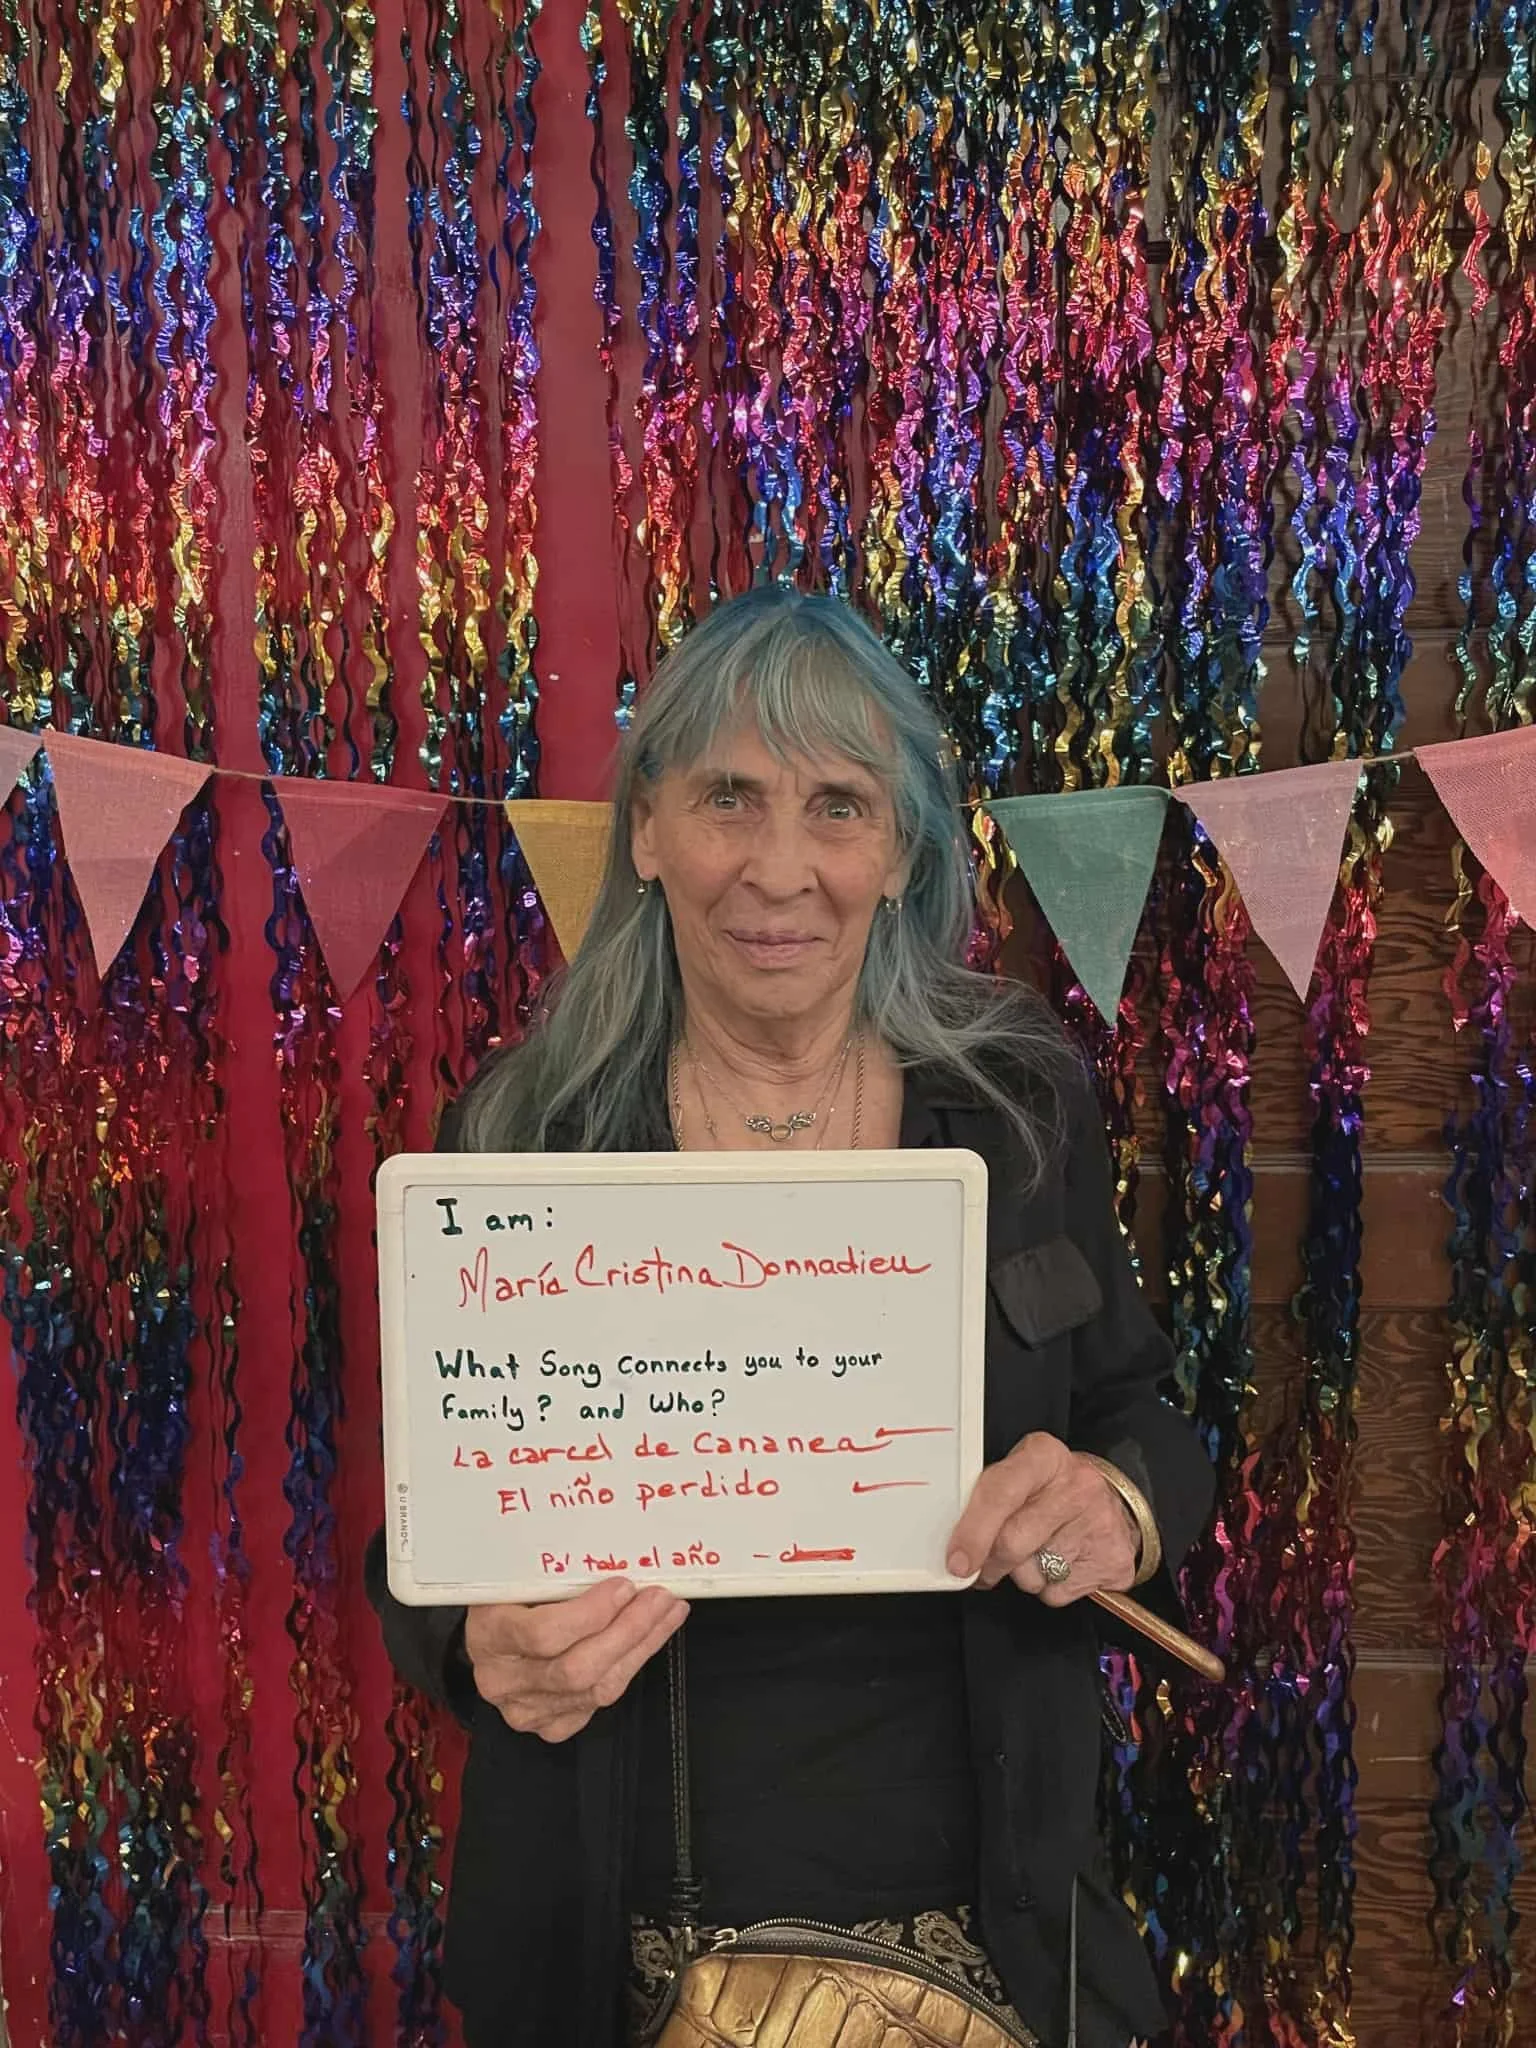 I am:
María Cristina Donnadieu
What Song connects you to your
family? and Who?
La carcel de Cananea
El niño perdido
Pa' todo el año -
U BRANDS